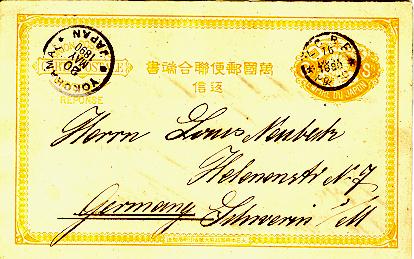 萬國郵便聯合端書
返信
YOKOHAMA
JAPAN
20
1890
RÉPONSE
DU JAPON
Herrn Louis Neubeck
Helenenstr N. 7
Germany Schwerin i/M